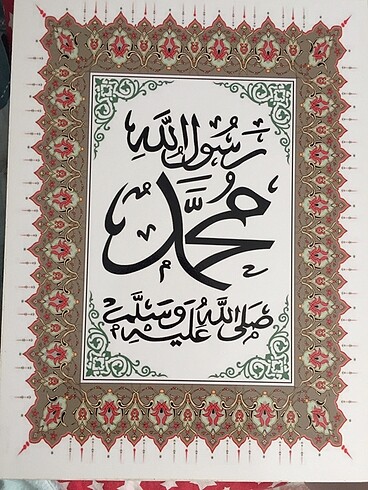 رَسُولُ اللَّه
مُحَمَّدٌ
صَلَى اللَّهُ عَلَيْهِ وَسَلَّمَ